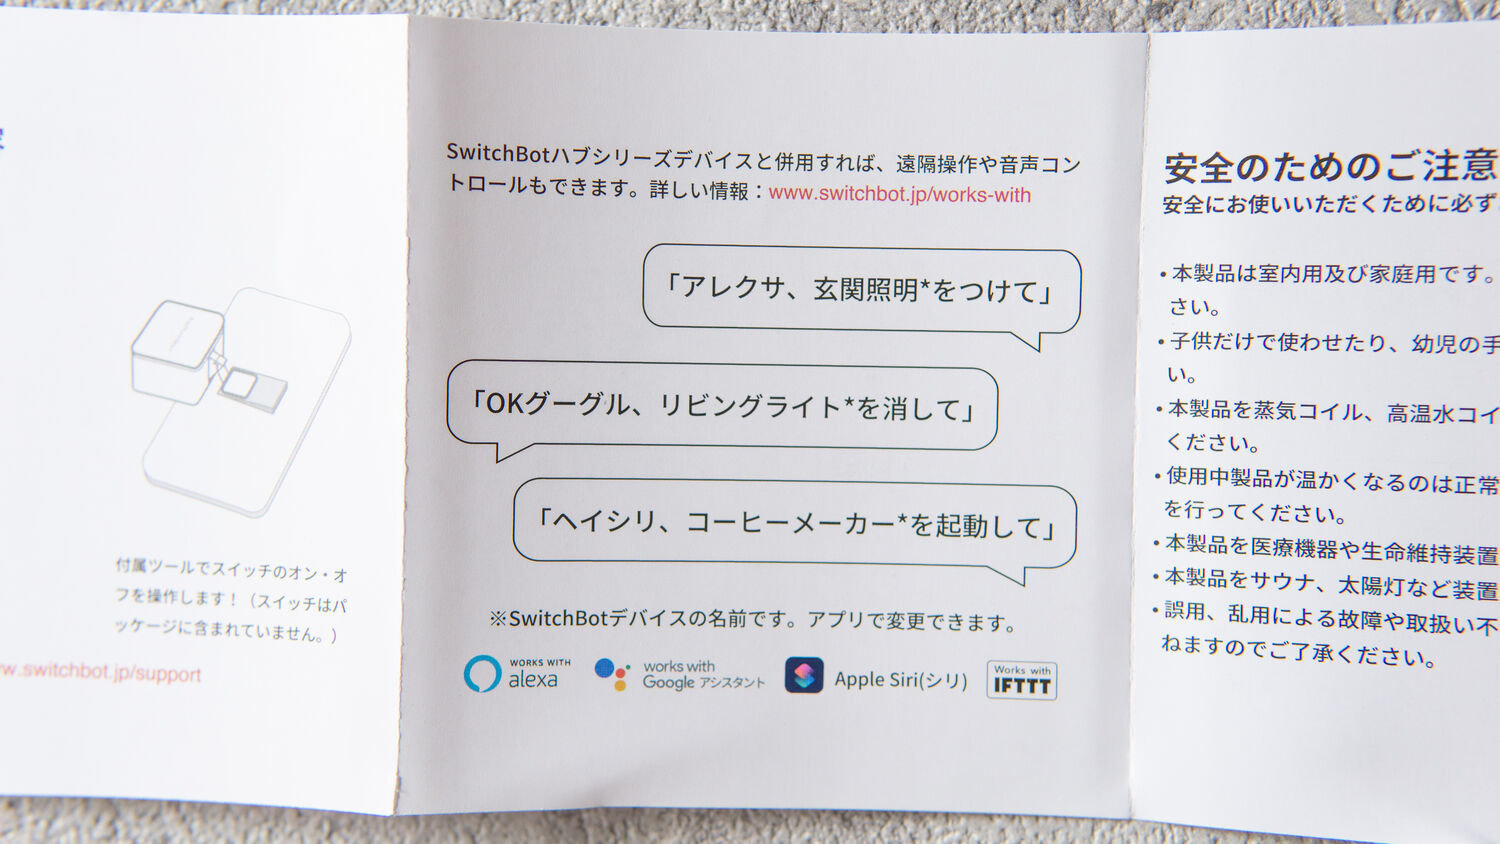 付属ツールでスイッチのオン・オ
フを操作します！（スイッチはパ
ッケージに含まれていません。）
w.switchbot.jp/support
SwitchBotハブシリーズデバイスと併用すれば、遠隔操作や音声コン
トロールもできます。詳しい情報：www.switchbot.jp/works-with
「アレクサ、玄関照明*をつけて」
「OKグーグル、リビングライト*を消して」
「ヘイシリ、コーヒーメーカー*を起動して」
※SwitchBotデバイスの名前です。アプリで変更できます。
WORKS WITH
alexa
works with
Google アシスタント
Apple Siri(シリ)
Works with
IFTTT
安全のためのご注意
安全にお使いいただくために必ず
•本製品は室内用及び家庭用です。
さい。
•子供だけで使わせたり、幼児の手
い。
•本製品を蒸気コイル、高温水コイ
ください。
•使用中製品が温かくなるのは正常
を行ってください。
•本製品を医療機器や生命維持装置
•本製品をサウナ、太陽灯など装置
•誤用、乱用による故障や取扱い不
ねますのでご了承ください。